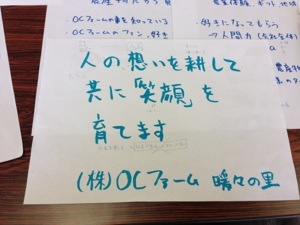 ・OCファームの事を知っている
・OCファームのファン、好き
・好きになってもらう
→人間力
人の想いを耕して
共に「笑顔」を
育てます
(株)OCファーム 暖々の里